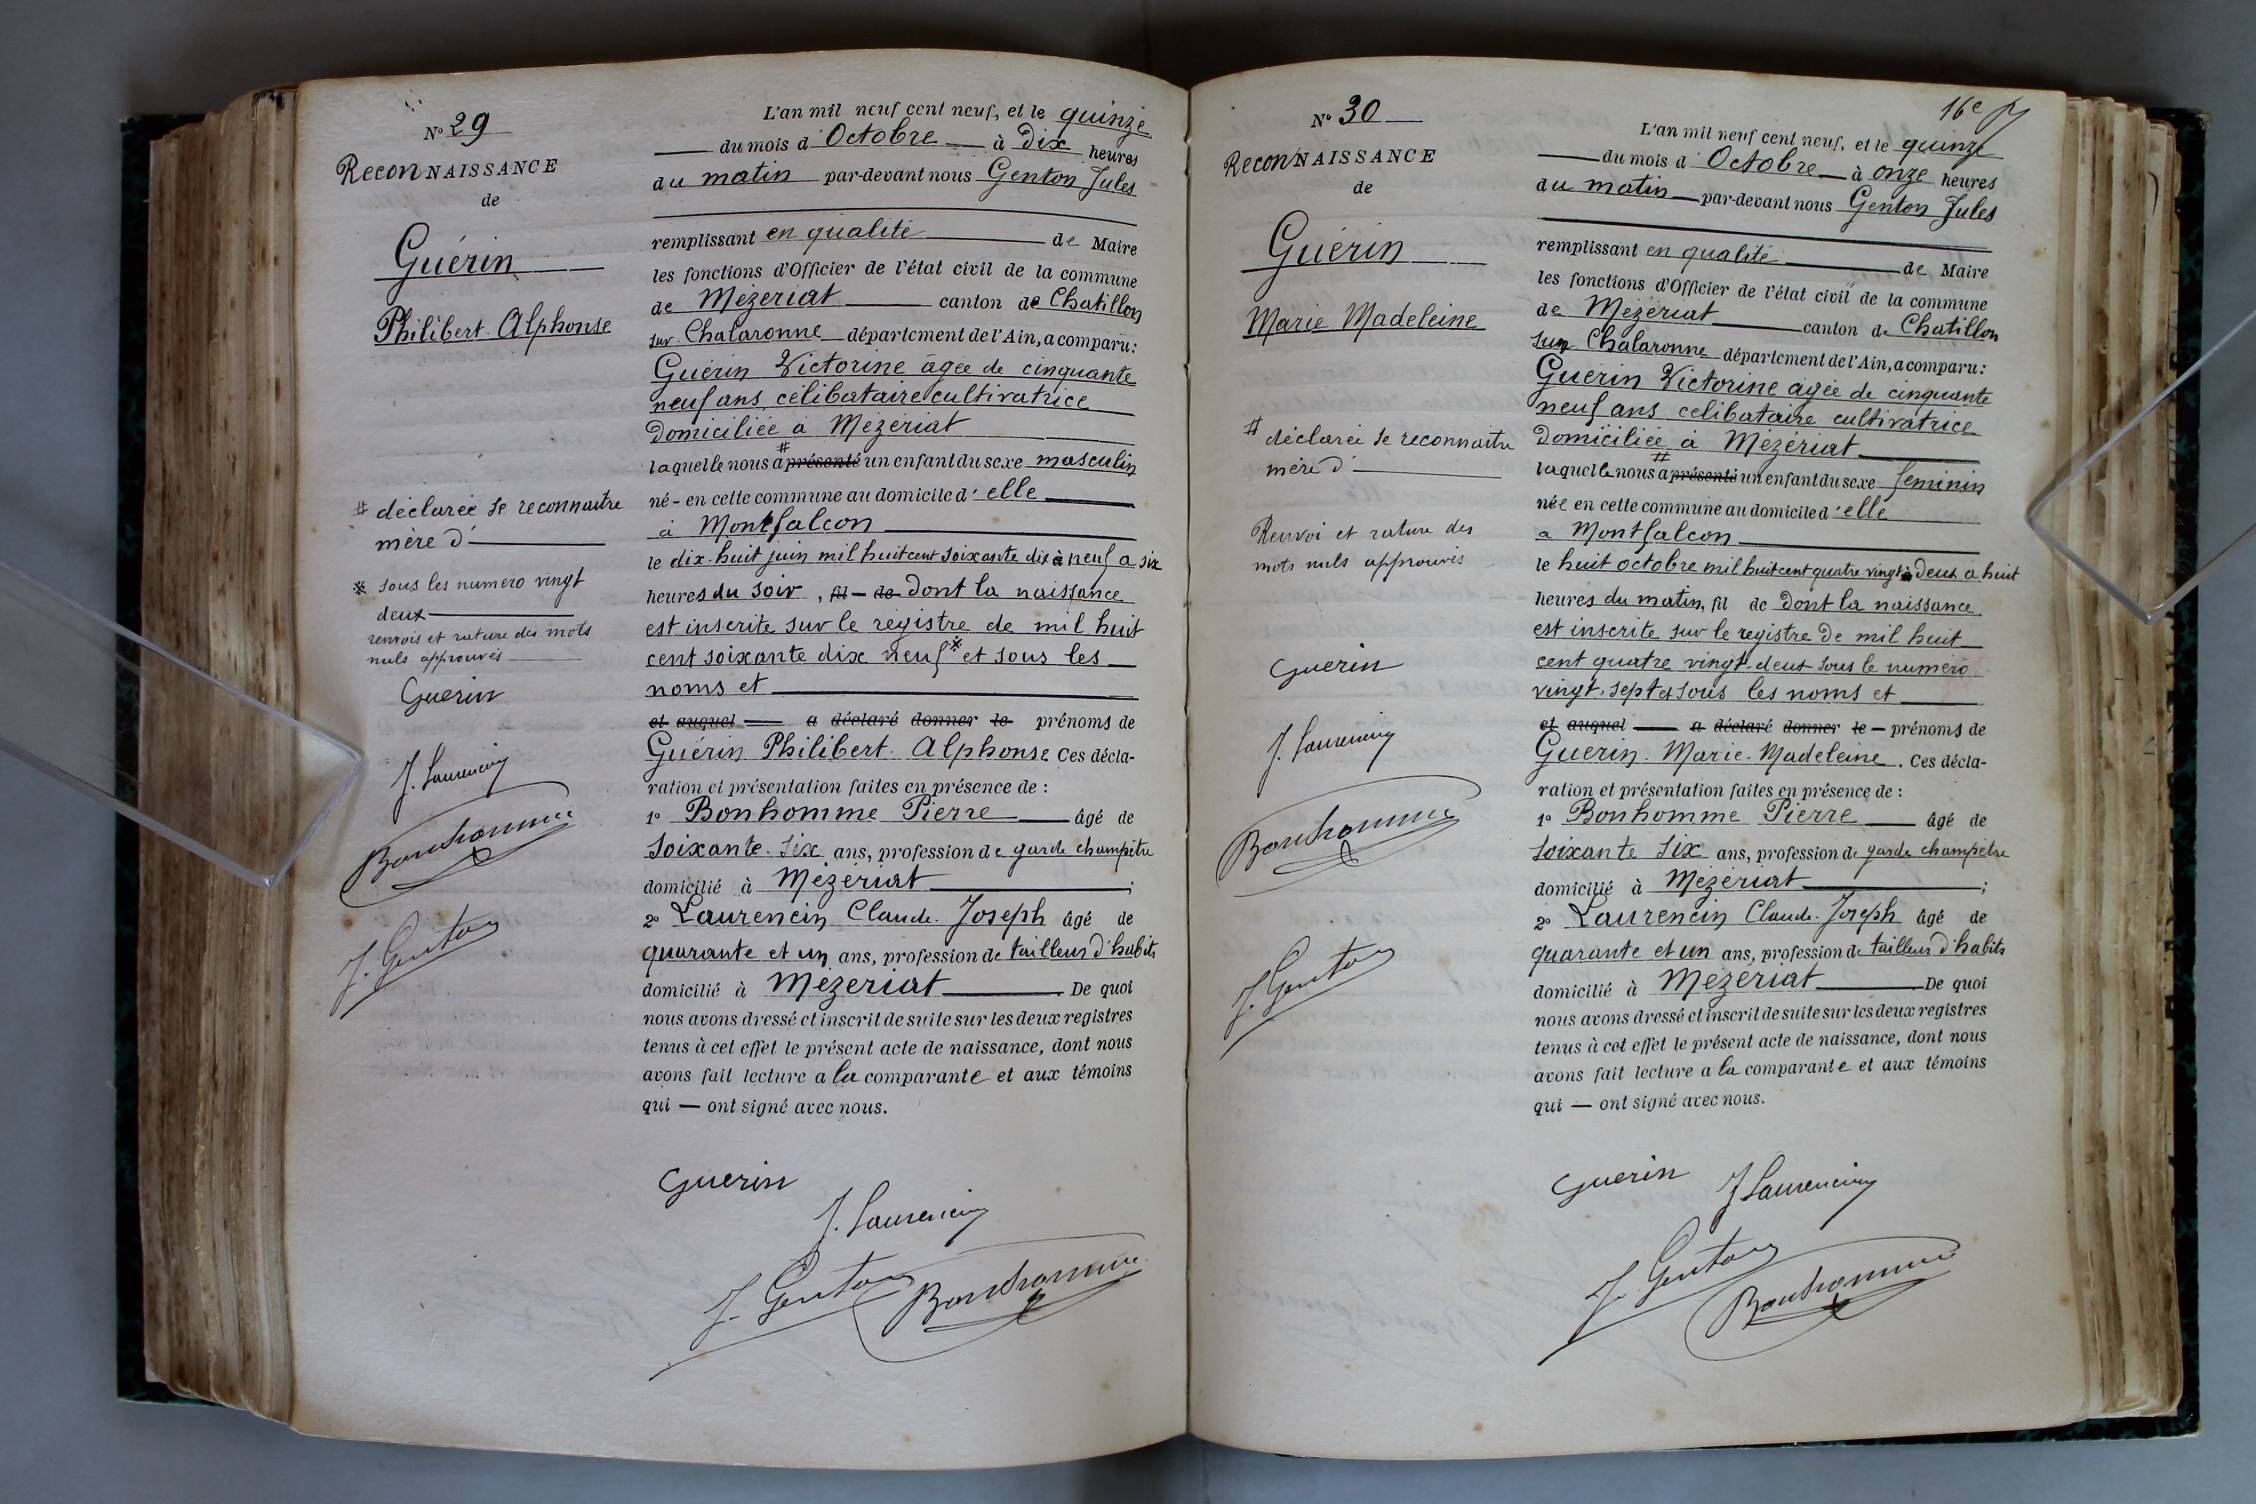 N° 29
ReconNAISSANCE
de
Guérin
Philibert Alphonse
# déclarée se reconnaitre
mère d'
※ sous les numero vingt
deux
renvois et rature des mots
nuls approuvés
Guerin
J. Laurencin
Bonhomme
J. Genton
L'an mil neuf cent neuf, et le quinze
du mois d'Octobre à Dix heures
du matin par-devant nous Genton Jules
remplissant en qualité de Maire
les fonctions d'Officier de l'état civil de la commune
de Mézériat canton de Chatillon
sur Chalaronne département de l'Ain, a comparu:
Guérin Victorine âgée de cinquante
neuf ans, célibataire cultivatrice
domiciliée à Mézériat
laquelle nous a # présenté un enfant du sexe masculin
né - en cette commune au domicile d'elle
à Montfalcon
le dix-huit juin mil huit cent soixante dix à neuf a six
heures du soir, fil - de Dont la naissance
est inscrite sur le régistre de mil huit
cent soixante dix neuf ※ et sous les
noms et
et auquel a déclaré donner le prénoms de
Guérin Philibert Alphonse Ces décla-
ration et présentation faites en présence de :
1° Bonhomme Pierre âgé de
soixante-six ans, profession de garde champêtre
domicilié à Mézériat ;
2° Laurencin Claude-Joseph âgé de
quarante et un ans, profession de tailleur d'habits
domicilié à Mézériat. De quoi
nous avons dressé et inscrit de suite sur les deux registres
tenus à cet effet le présent acte de naissance, dont nous
avons fait lecture a la comparante et aux témoins
qui — ont signé avec nous.
Guerin
J. Laurencin
J. Genton Bonhomme
16e
N° 30
ReconNAISSANCE
de
Guérin
Marie Madeleine
# déclarée se reconnaitre
mère d'
Renvoi et rature des
mots nuls approuvés
Guerin
J. Laurencin
Bonhomme
J. Genton
L'an mil neuf cent neuf, et le quinze
du mois d'Octobre à onze heures
du matin par-devant nous Genton Jules
remplissant en qualité de Maire
les fonctions d'Officier de l'état civil de la commune
de Mézériat canton de Chatillon
sur Chalaronne département de l'Ain, a comparu:
Guérin Victorine âgée de cinquante
neuf ans célibataire cultivatrice
domiciliée à Mézériat
laquelle nous a # présenté un enfant du sexe feminin
née en cette commune au domicile d'elle
a Montfalcon
le huit octobre mil huit cent quatre vingt à deux a huit
heures du matin, fil de dont la naissance
est inscrite sur le registre de mil huit
cent quatre vingt-deux sous le numéro
vingt-sept et sous les noms et
et auquel a déclaré donner le - prénoms de
Guerin Marie-Madeleine. Ces décla-
ration et présentation faites en présence de :
1° Bonhomme Pierre âgé de
soixante six ans, profession de garde champêtre
domicilié à Mézériat ;
2° Laurencin Claude-Joseph âgé de
quarante et un ans, profession de tailleur d'habits
domicilié à Mézériat De quoi
nous avons dressé et inscrit de suite sur les deux registres
tenus à cet effet le présent acte de naissance, dont nous
avons fait lecture a la comparante et aux témoins
qui — ont signé avec nous.
Guerin J Laurencin
J. Genton
Bonhomme